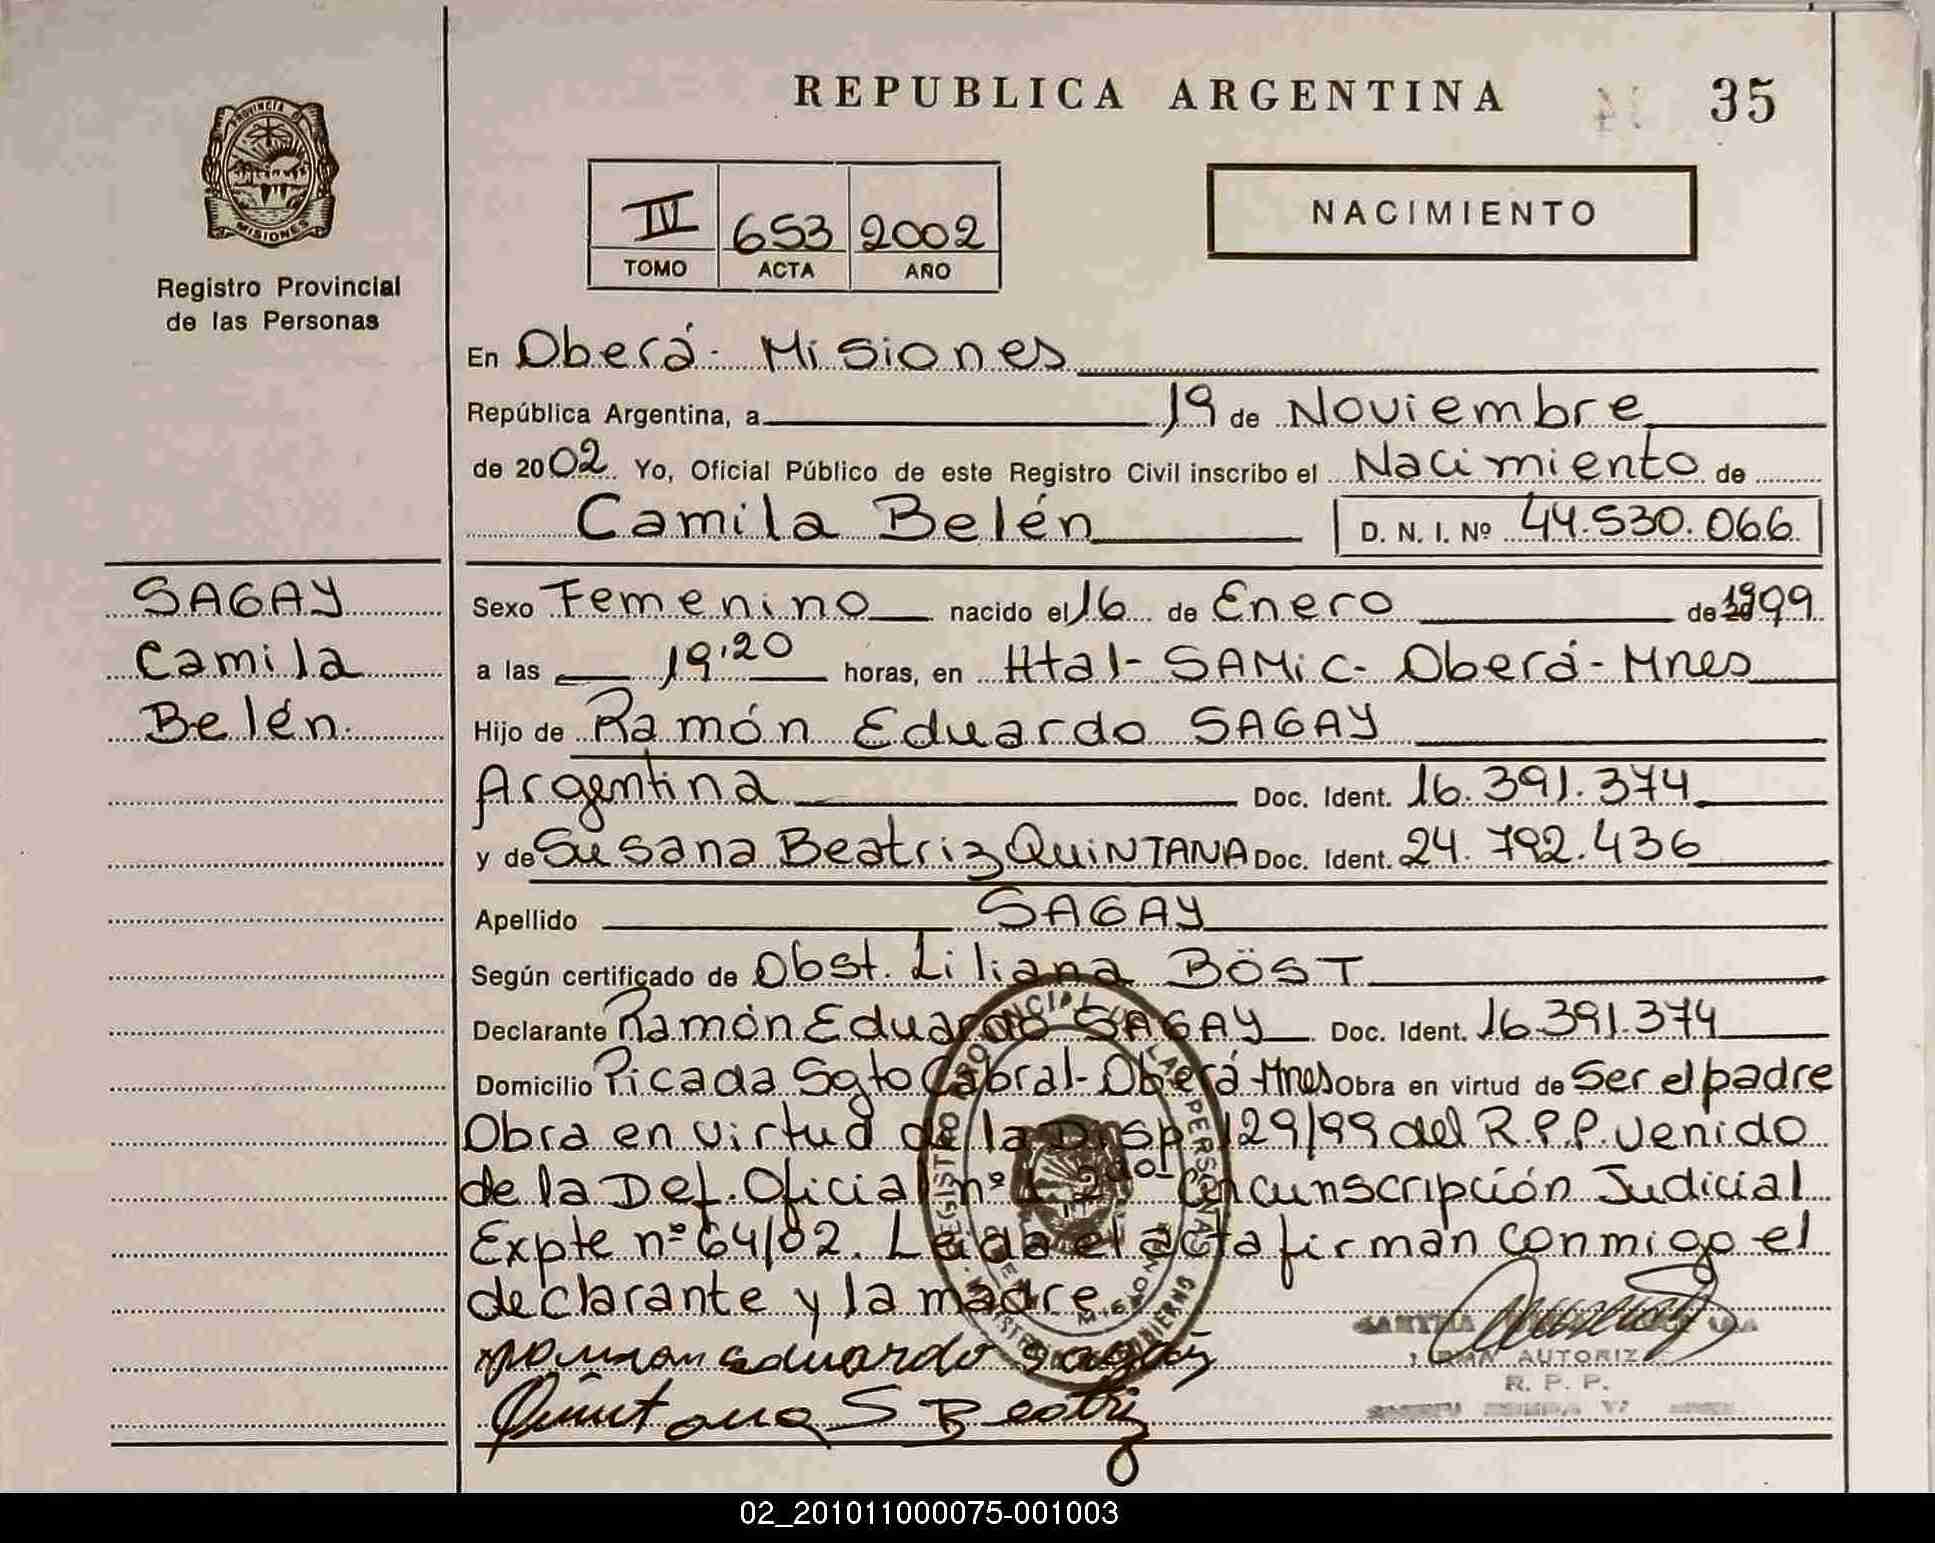 REPUBLICA ARGENTINA
35
PROVINCIA DE
MISIONES
Registro Provincial
de las Personas
IV 653 2002
TOMO ACTA AÑO
NACIMIENTO
En Oberá - Misiones
República Argentina, a 19 de Noviembre
de 2002 Yo, Oficial Público de este Registro Civil inscribo el Nacimiento de
Camila Belén D. N. I. Nº 44.530.066
SAGAY
Camila
Belén.
Sexo Femenino nacido el 16 de Enero de 1999
a las 19:20 horas, en Htal - SAMiC - Oberá - Mnes
Hijo de Ramón Eduardo SAGAY
Argentina Doc. Ident. 16.391.374
y de Susana Beatriz QUiNTANA Doc. Ident. 24.792.436
Apellido SAGAY
Según certificado de Obst. Liliana BÖST
Declarante Ramón Eduardo SAGAY Doc. Ident. 16.391.374
Domicilio Picada Sgto Cabral - Oberá - Mnes Obra en virtud de Ser el padre
Obra en virtud de la Disp 129/99 del R.P.P. venido
de la Def. Oficial nº 2da Circunscripción Judicial
Expte nº 64/02. Leida el acta firman conmigo el
declarante y la madre
Ramon eduardo Sagay
Quintana S Beatriz
AUTORIZ
R. P. P.
02_201011000075-001003